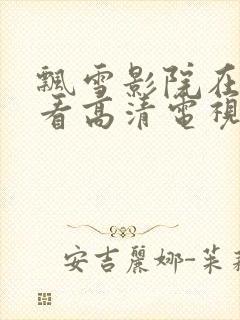 飄雪影院在
看高清電視
安吉麗娜-茱